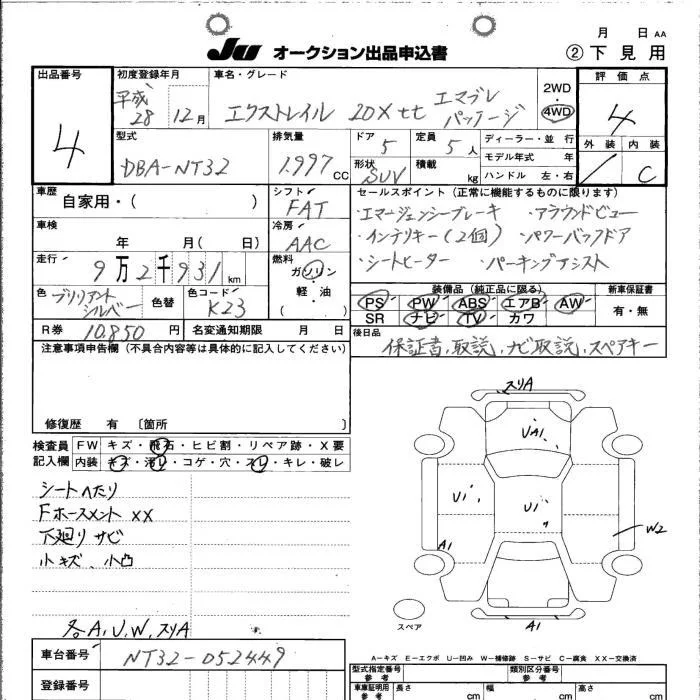 月 日 AA
JU オークション出品申込書
② 下見用
出品番号 4
初度登録年月 平成28 12月
車名・グレード エクストレイル 20X tt エマブレ パッケージ
2WD・4WD
評価点 4
外装 内装 C
型式 DBA-NT32
排気量 1.997 CC
ドア 5
定員 5人
形状 SUV
積載 kg
ディーラー・並行
モデル年式 年
ハンドル 左・右
車歴 自家用・( )
シフト FAT
セールスポイント (正常に機能するものに限ります)
・エマージェンシーブレーキ ・アラウンドビュー
・インテリキー(2個) ・パワーバックドア
・シートヒーター ・パーキングアシスト
車検 年 月( 日)
冷房 AAC
走行 9万2千931km
燃料 ガソリン・軽・油 ( )
色 ブリリアントシルバー
色替
色コード K23
装備品 (純正品に限る)
PS PW ABS エアB AW
SR ナビ TV カワ
新車保証書 有・無
R券 10.850 円
名変通知期限 月 日
後日品 保証書、取説、ナビ取説、スペアキー
注意事項申告欄 (不具合内容等は具体的に記入してください)
修復歴 有 〔箇所 〕
検査員記入欄
FW キズ・飛石・ヒビ割・リペア跡・X要
内装 キズ・汚レ・コゲ・穴・スレ・キレ・破レ
シートへたり
Fホースメント XX
下廻りサビ
小キズ、小凸
各A,U,W,スリA
スリA
UA1
U1
U1
W2
A1
A1
スペア
A-キズ E-エクボ U-凹み W-補修跡 S-サビ C-腐食 XX-交換済
車台番号 NT32-052449
登録番号
型式指定番号 参考
類別区分番号 参考
車庫証明用 参考
長さ cm
幅 cm
高さ cm